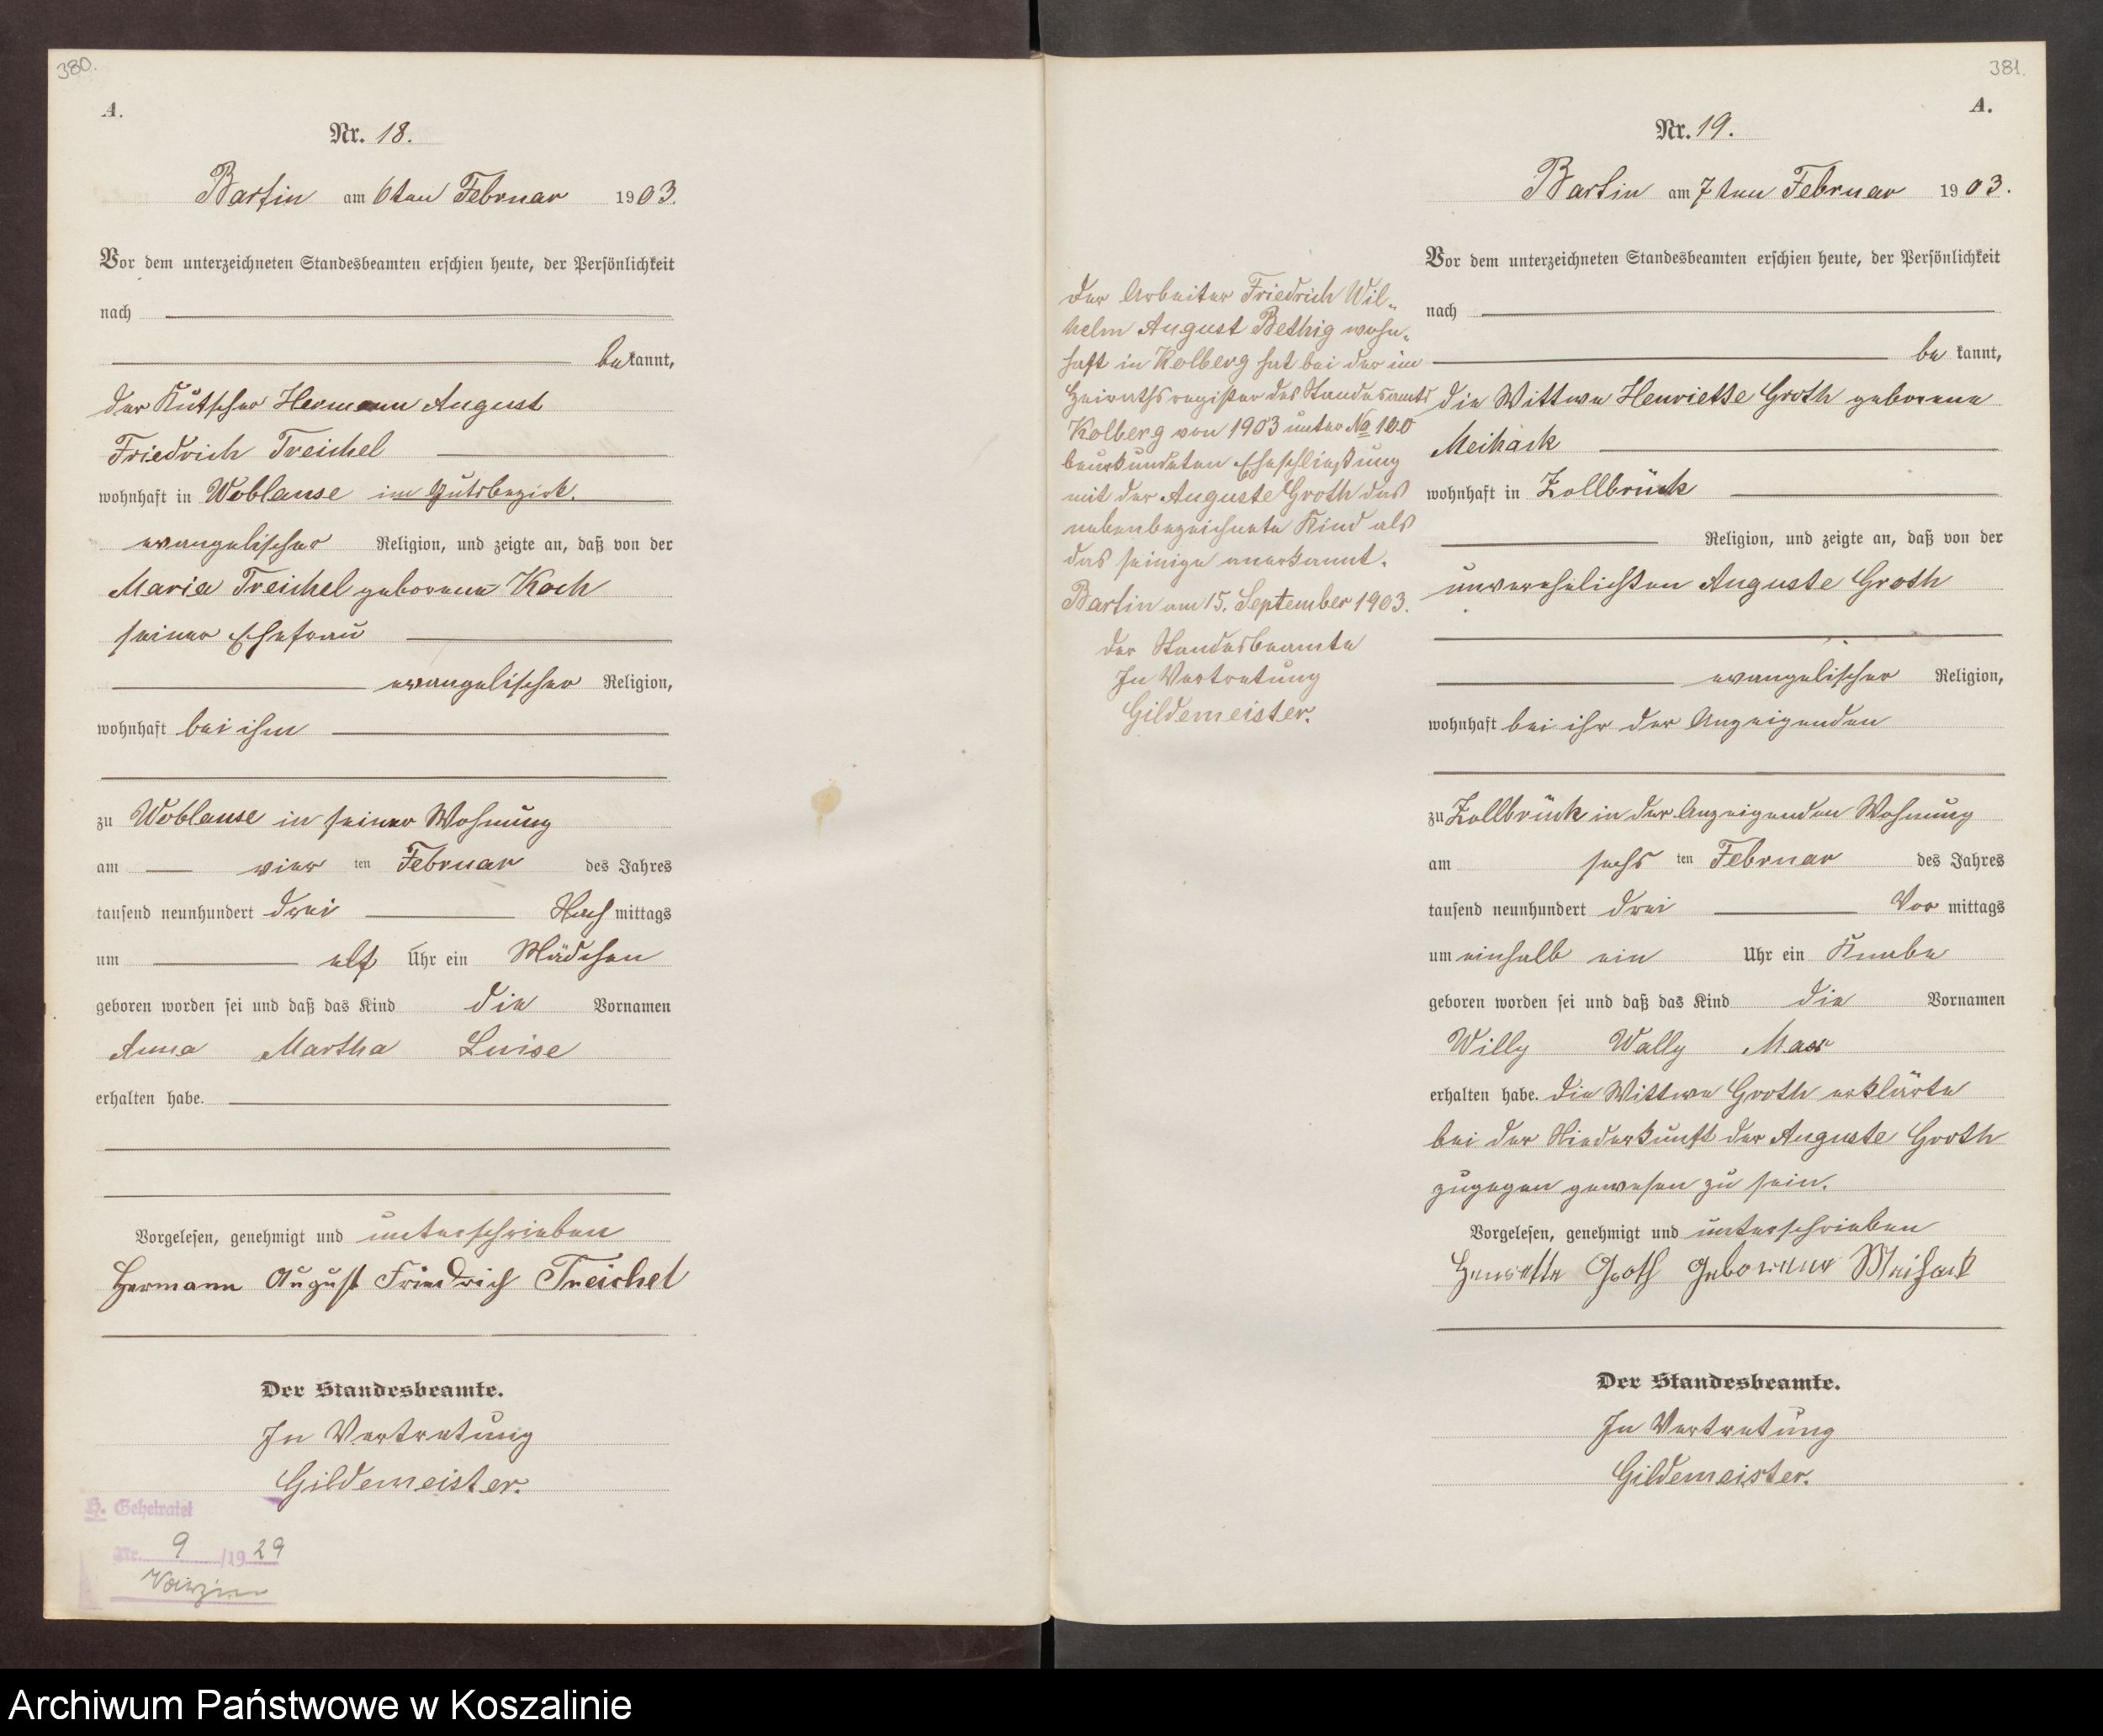 380.
A.
Nr. 18.
Bartin am 6ten Februar 1903.
Vor dem unterzeichneten Standesbeamten erschien heute, der Persönlichkeit
nach
bekannt,
der Kutscher Hermann August
Friedrich Treichel
wohnhaft in Woblanse im Gutsbezirk.
evangelischer Religion, und zeigte an, daß von der
Maria Treichel geborene Koch
seiner Ehefrau
evangelischer Religion,
wohnhaft bei ihm
zu Woblanse in seiner Wohnung
am vier ten Februar des Jahres
tausend neunhundert drei Nachmittags
um elf Uhr ein Mädchen
geboren worden sei und daß das Kind die Vornamen
Anna Martha Luise
erhalten habe.
Vorgelesen, genehmigt und unterschrieben
Hermann August Friedrich Treichel
Der Standesbeamte.
In Vertretung
Gildemeister.
H. Geheiratet
Nr. 9 /1929
Varzin
381.
A.
Nr. 19.
Bartin am 7ten Februar 1903.
Vor dem unterzeichneten Standesbeamten erschien heute, der Persönlichkeit
nach
bekannt,
die Wittwe Henriette Groth geborene
Meihack
wohnhaft in Zollbrück
Religion, und zeigte an, daß von der
unverehelichten Auguste Groth
evangelischer Religion,
wohnhaft bei ihr der Anzeigenden
zu Zollbrück in der Anzeigenden Wohnung
am sechs ten Februar des Jahres
tausend neunhundert drei Vormittags
um einhalb ein Uhr ein Knabe
geboren worden sei und daß das Kind die Vornamen
Willy Wally Max
erhalten habe. Die Wittwe Groth erklärte
bei der Niederkunft der Auguste Groth
zugegen gewesen zu sein.
Vorgelesen, genehmigt und unterschrieben
Henriette Groth Geborene Meihack
Der Standesbeamte.
In Vertretung
Gildemeister.
Der Arbeiter Friedrich Wil-
helm August Bethig wohn-
haft in Kolberg hat bei der im
Heirathsregister des Standesamts
Kolberg von 1903 unter No 100
beurkundeten Eheschließung
mit der Auguste Groth das
nebenbezeichnete Kind als
das seinige anerkannt.
Bartin am 15. September 1903.
Der Standesbeamte
In Vertretung
Gildemeister.
Archiwum Państwowe w Koszalinie